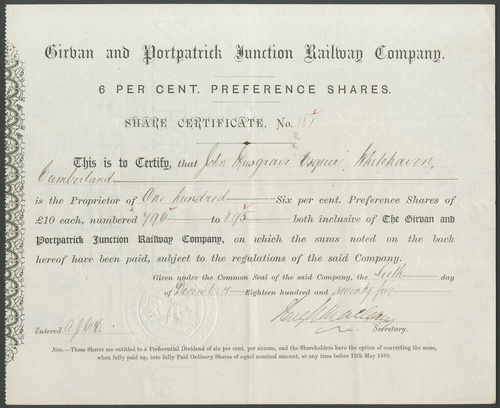 Girvan and Portpatrick Junction Railway Company.
6 PER CENT. PREFERENCE SHARES.
SHARE CERTIFICATE, No. 181
This is to Certify, that John Musgrave Esquire, Whitehaven,
Cumberland
is the Proprietor of One hundred Six per cent. Preference Shares of
£10 each, numbered 796 to 895 both inclusive of The Girvan and
Portpatrick Junction Railway Company, on which the sums noted on the back
hereof have been paid, subject to the regulations of the said Company.
Given under the Common Seal of the said Company, the Sixth day
of December Eighteen hundred and seventy five
Entered
Secretary.
Note.—These Shares are entitled to a Preferential Dividend of six per cent. per annum, and the Shareholders have the option of converting the same,
when fully paid up, into fully Paid Ordinary Shares of equal nominal amount, at any time before 12th May 1880.